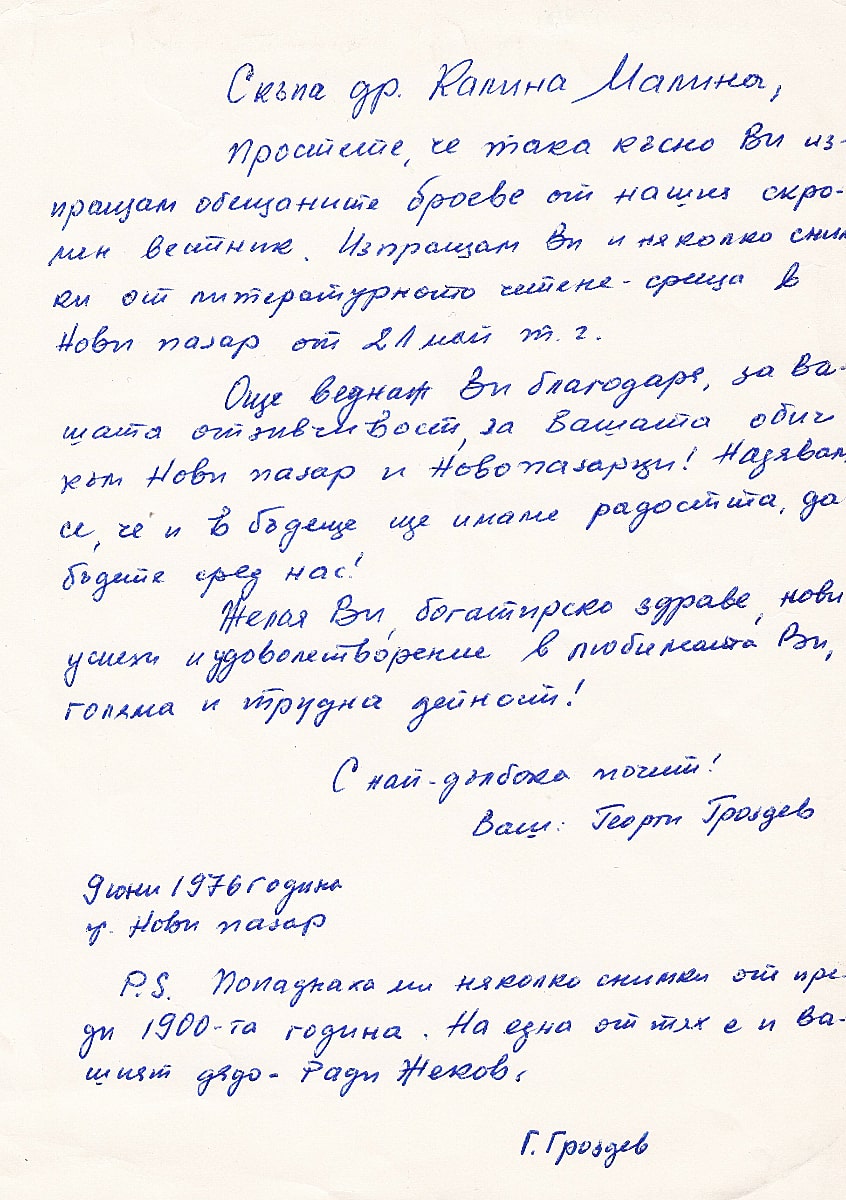 Скъпа др. Калина Малина,
Простете, че така късно Ви из-
пращам обещаните броеве от нашия скро-
мен вестник. Изпращам Ви и няколко сним
ки от литературното четене-среща в
Нови пазар от 21 май т.г.
Още веднаж Ви благодаря, за Ва-
шата отзивчивост, за Вашата обич
към Нови пазар и Новопазарци! Надявам
се, че и в бъдеще ще имаме радостта, да
бъдете сред нас!
Желая Ви, богатирско здраве, нови
успехи и удоволетворение в любимата Ви,
голяма и трудна дейност!
С най-дълбока почит!
Ваш: Георги Гроздев
9 юни 1976 година
гр. Нови пазар
P.S. Попаднаха ми няколко снимки от пре-
ди 1900-та година. На една от тях е и Ва-
шият дядо - Ради Жеков.
Г. Гроздев